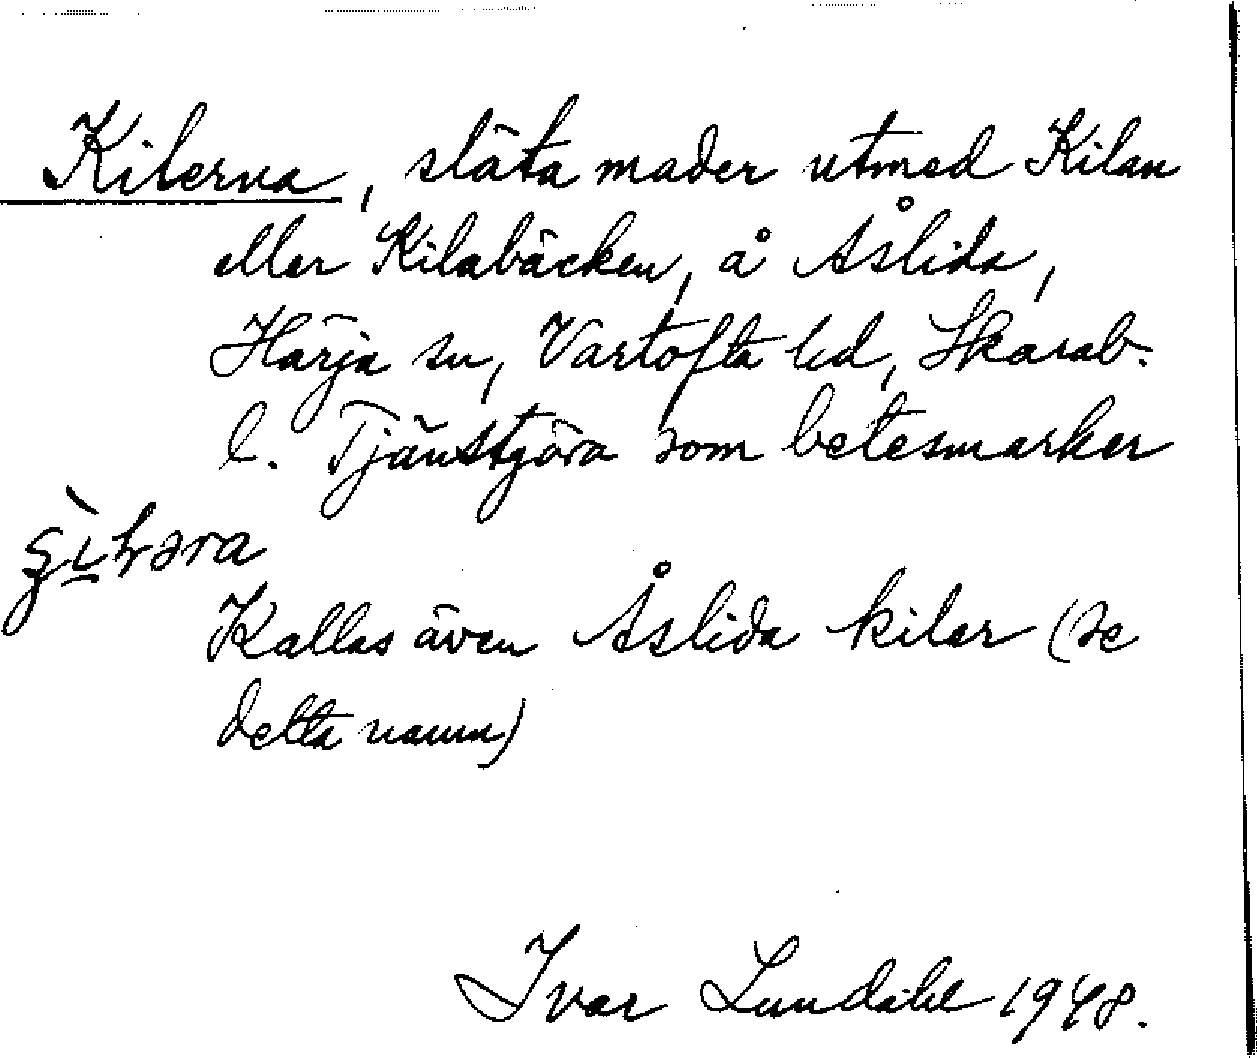 Kilerna, släta mader utmed Kilan
eller Kilabäcken, å Åslida,
Härja sn, Vartofta hd, Skarab.
l. Tjänstgöra som betesmarker
Kallas även Åslida kilar (se
detta namn)
Ivar Lundahl 1948.